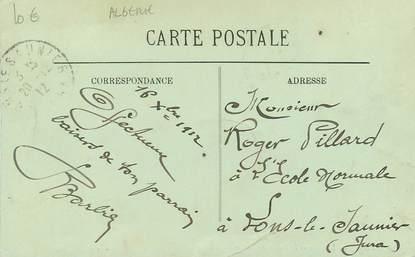 10 €
ALGERIE
CARTE POSTALE
CORRESPONDANCE
ADRESSE
16 Xbre 1912
Affectueux
baisers de ton parrain
Barbier
Monsieur
Roger Pillard
à l'École Normale
à Lons-le-Saunier
(Jura)